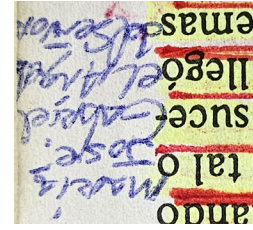 ando
tal o
suce-
llegó
emas
María y
José,
Gabriel
el Angel
del Señor